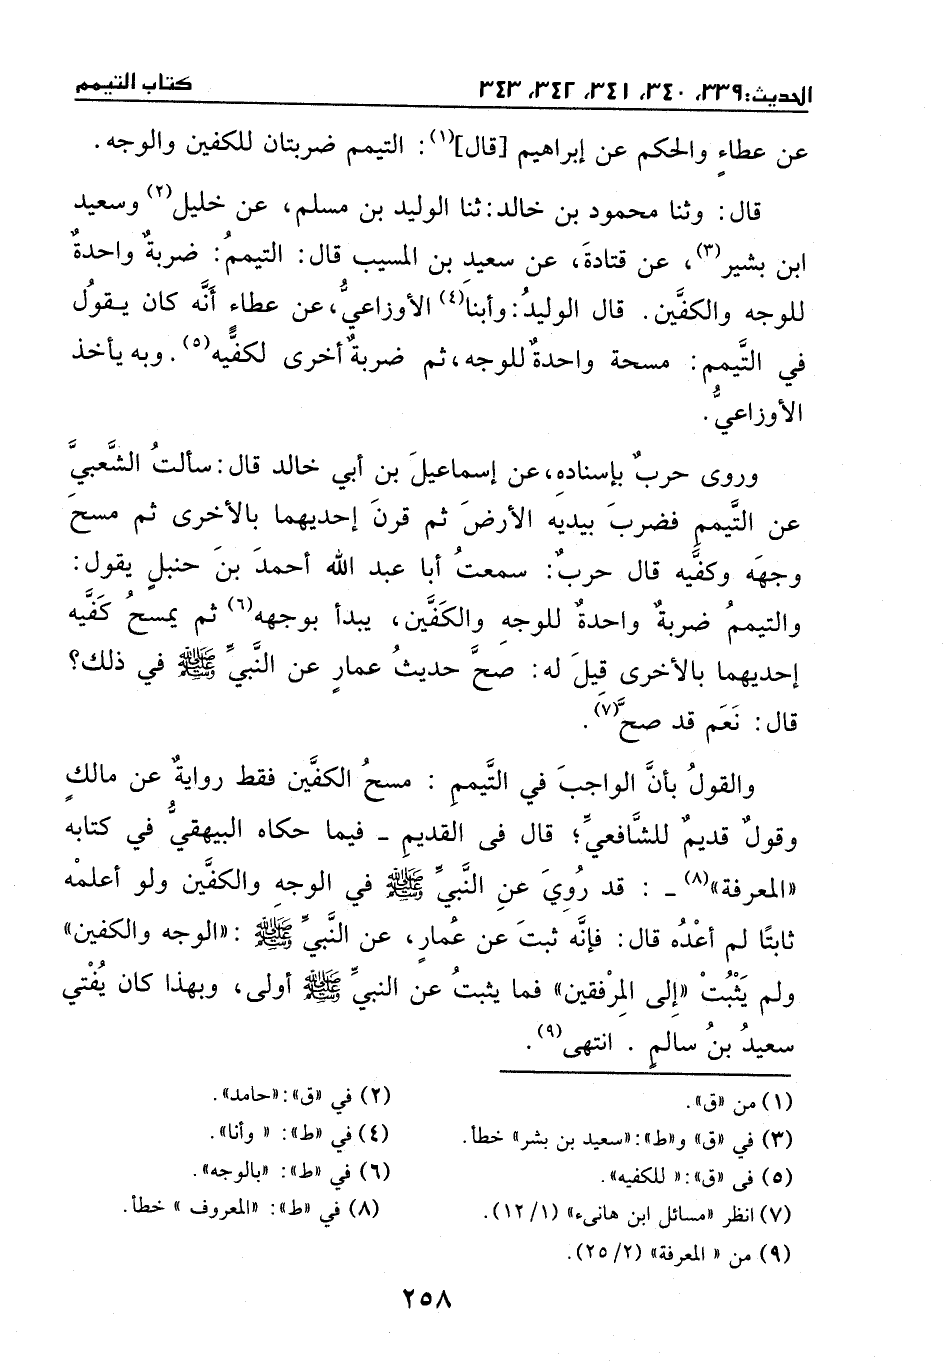 الحديث: ٣٣٩، ٣٤٠، ٣٤١، ٣٤٢، ٣٤٣ كتاب التيمم
عن عطاءٍ والحكم عن إبراهيم [قال](١): التيمم ضربتان للكفين والوجه.
قال: وثنا محمود بن خالد: ثنا الوليد بن مسلم، عن خليل(٢) وسعيد
ابن بشير(٣)، عن قتادةَ، عن سعيدِ بن المسيب قال: التيممُ: ضربةٌ واحدةٌ
للوجه والكفَّين. قال الوليدُ: وأبنا(٤) الأوزاعيُّ، عن عطاء أنَّه كان يقولُ
في التَّيمم: مسحة واحدةٌ للوجه، ثم ضربةٌ أخرى لكفَّيه(٥). وبه يأخذ
الأوزاعيُّ.
وروى حربٌ بإسنادهِ، عن إسماعيلَ بن أبي خالد قال: سألتُ الشَّعبيَّ
عن التَّيممِ فضربَ بيديه الأرضَ ثم قرنَ إحديهما بالأخرى ثم مسحَ
وجهَه وكفَّيه قال حربٌ: سمعتُ أبا عبد الله أحمدَ بنَ حنبلٍ يقول:
والتيممُ ضربةٌ واحدةٌ للوجهِ والكَفَّين، يبدأ بوجهه(٦) ثم يمسحُ كَفَّيه
إحديهما بالأخرى قِيلَ له: صحَّ حديثُ عمارٍ عن النَّبيِّ ﷺ في ذلك؟
قال: نَعَم قد صحَّ(٧).
والقولُ بأنَّ الواجبَ في التَّيممِ : مسحُ الكفَّين فقط روايةٌ عن مالكٍ
وقولٌ قديمٌ للشَّافعيِّ؛ قال فى القديمِ ـ فيما حكاه البيهقيُّ في كتابه
«المعرفة»(٨) ـ : قد رُوِيَ عنِ النَّبيِّ ﷺ في الوجهِ والكفَّين ولو أعلمْه
ثابتًا لم أعْدُه قال: فإنَّه ثبتَ عن عُمارٍ، عن النَّبيِّ ﷺ :«الوجه والكفين»
ولم يَثْبُتْ «إلى المِرْفقين» فما يثبتُ عن النبيِّ ﷺ أولى، وبهذا كان يُفْتي
سعيدُ بنُ سالمٍ . انتهى(٩).
(١) من «ق». (٢) في «ق»: «حامد».
(٣) في «ق» و«ط»: «سعيد بن بشر» خطأ. (٤) في «ط»: « وأنا».
(٥) فى «ق»: « للكفيه». (٦) في «ط»: «بالوجه».
(٧) انظر «مسائل ابن هانىء» (١/ ١٢). (٨) في «ط»: «المعروف » خطأ.
(٩) من « المعرفة» (٢/ ٢٥).
٢٥٨